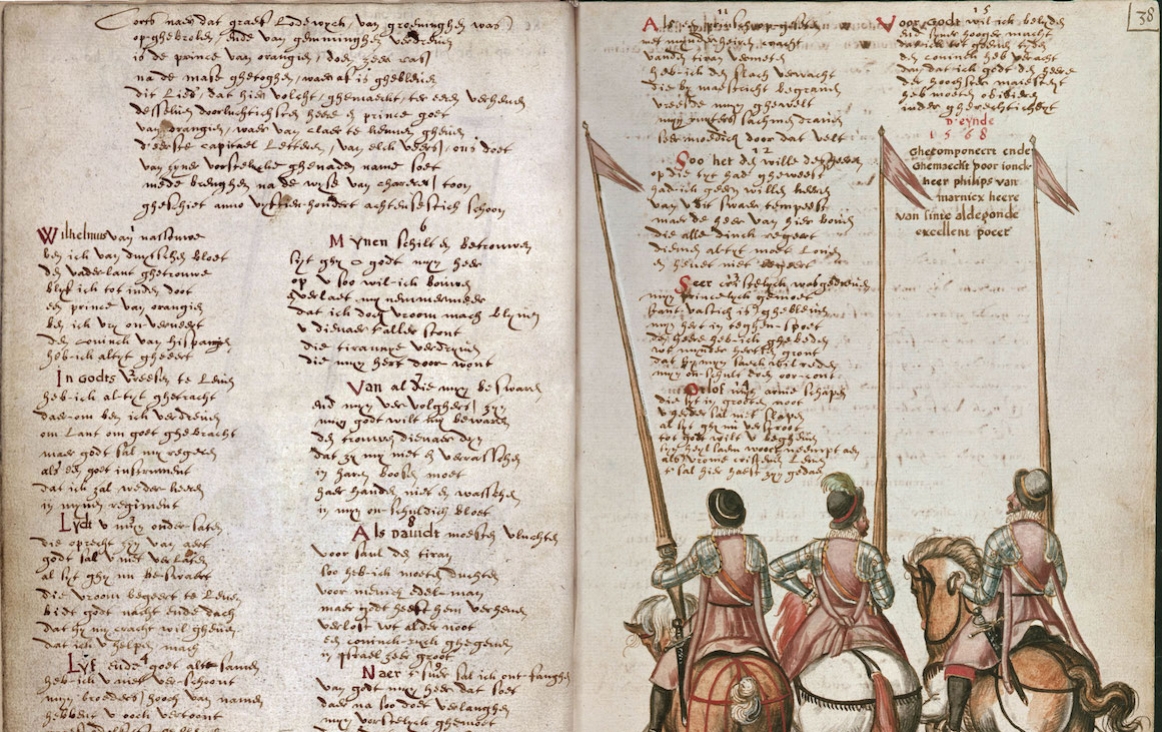 Corts naer dat graef Lodewyck, van groeninghen was
op ghebroken, ende van gemminghen verdreven
is de prince van orangien, doer zeer ras
na de mase ghetoghen, waer af is ghebleven
dit Lied, dat hier volcht, ghemaeckt, ter eeren verheven
desselven doorluchtichsten heere en prince goet
van orangien, waer van claer te kennen gheven
d'eerste capitael Letteren, van elck veers, ons doet
van zyner vorstelycke ghenaden name soet
mede brenghen na de wyse van chartres toon
gheschiet anno vyfthien-hondert achtensestich schoon
Wilhelmus van nassouwe
ben ick van duysschen bloet
den vaderlant ghetrouwe
blyf ick tot inden doot
een prince van orangien
ben ick vry on-verveert
den coninck van hispangien
heb-ick altyt gheeert
In Godts vreesen te Leven
heb-ick altyt ghetracht
daer-om ben ick verdreven
om Lant om goet ghebracht
maer godt sal my regeren
als een goet instrument
dat ick zal weder keeren
in mynen regiment
Lydt u myn onder-saten
die oprecht zyn van aert
godt sal u niet verlaten
al syt ghy nu beswaert
die vroom begeert te Leven
bidt godt nacht ende dach
dat hy my cracht wil gheven
dat ick u helpen mach
Lyf ende goet altesamen
heb-ick u niet ver-schoont
myn broeders hooch van namen
hebbent u ooch vertoont
6
Mynen schilt en betrouwen
syt ghy o godt myn heer
op u soo wil-ick bouwen
verlaet my nemmermeer
dat ick doch vroom mach blyven
u dienaer t'aller stont
die tirannye verdryven
die myn hert door-wont
Van al die myn beswaren
end myn ver-volghers zyn
myn godt wilt my bewaren
den trouwen dienaer dyn
dat zy my niet en verrasschen
in haren boosen moet
haer handen niet en wasschen
in myn on-schuldich bloet
8
Als Davidt moesten vluchten
voor saul den tiran
soo heb-ick moeten suchten
voor menich edel-man
maer godt heeft hem verheven
verlost wt alder noot
een coninck-ryck ghegeven
in israel zeer groot
9
Naer t'suer sal ick ont-fanghen
van godt myn heer dat soet
daer na soo doet verlanghen
myn vorstelyck ghemoet
38
11
vanden tiran vermeten
heb-ick den slach verwacht
die by maestricht begraven
vreesde myn ghewelt
myn ruyters sachmen draven
seer moedich door dat velt
12
Soo het den wille des heeren
op die tyt had gheweest
had-ick geern willen keeren
van u dit swaer tempeest
maer de heer van hier boven
die alle dinck regeert
diemen altyt moet Loven
en heuet niet begeert
Seer
myn princelyck gemoet
stant-vastich is ghebleven
myn hert in teghen-spoet
den heere heb-ick ghebeden
wt mynder herten gront
dat hy myn saeck wil reden
myn on-schult doen
Orlof myn arme schapen
die syt in grooten noot
u herder sal niet slapen
al syt ghy nu verstroyt
tot godt wilt u begheven
syn heylsaem woort neempt aen
als vrome cristen Leven
t'sal hier haest zyn gedaen
15
Voor Godt wil ick belyden
end syner hooger macht
dat ick tot gheenen tyden
den coninck heb veracht
dan dat ick godt den heere
der hoochster maiesteyt
heb moeten obediren
inder gherechticheyt
D'eynde
1568
Ghecomponeert ende
Ghemaeckt voor ionck-
heer philips van
marnix heere
van sinte aldegonde
excellent poeet